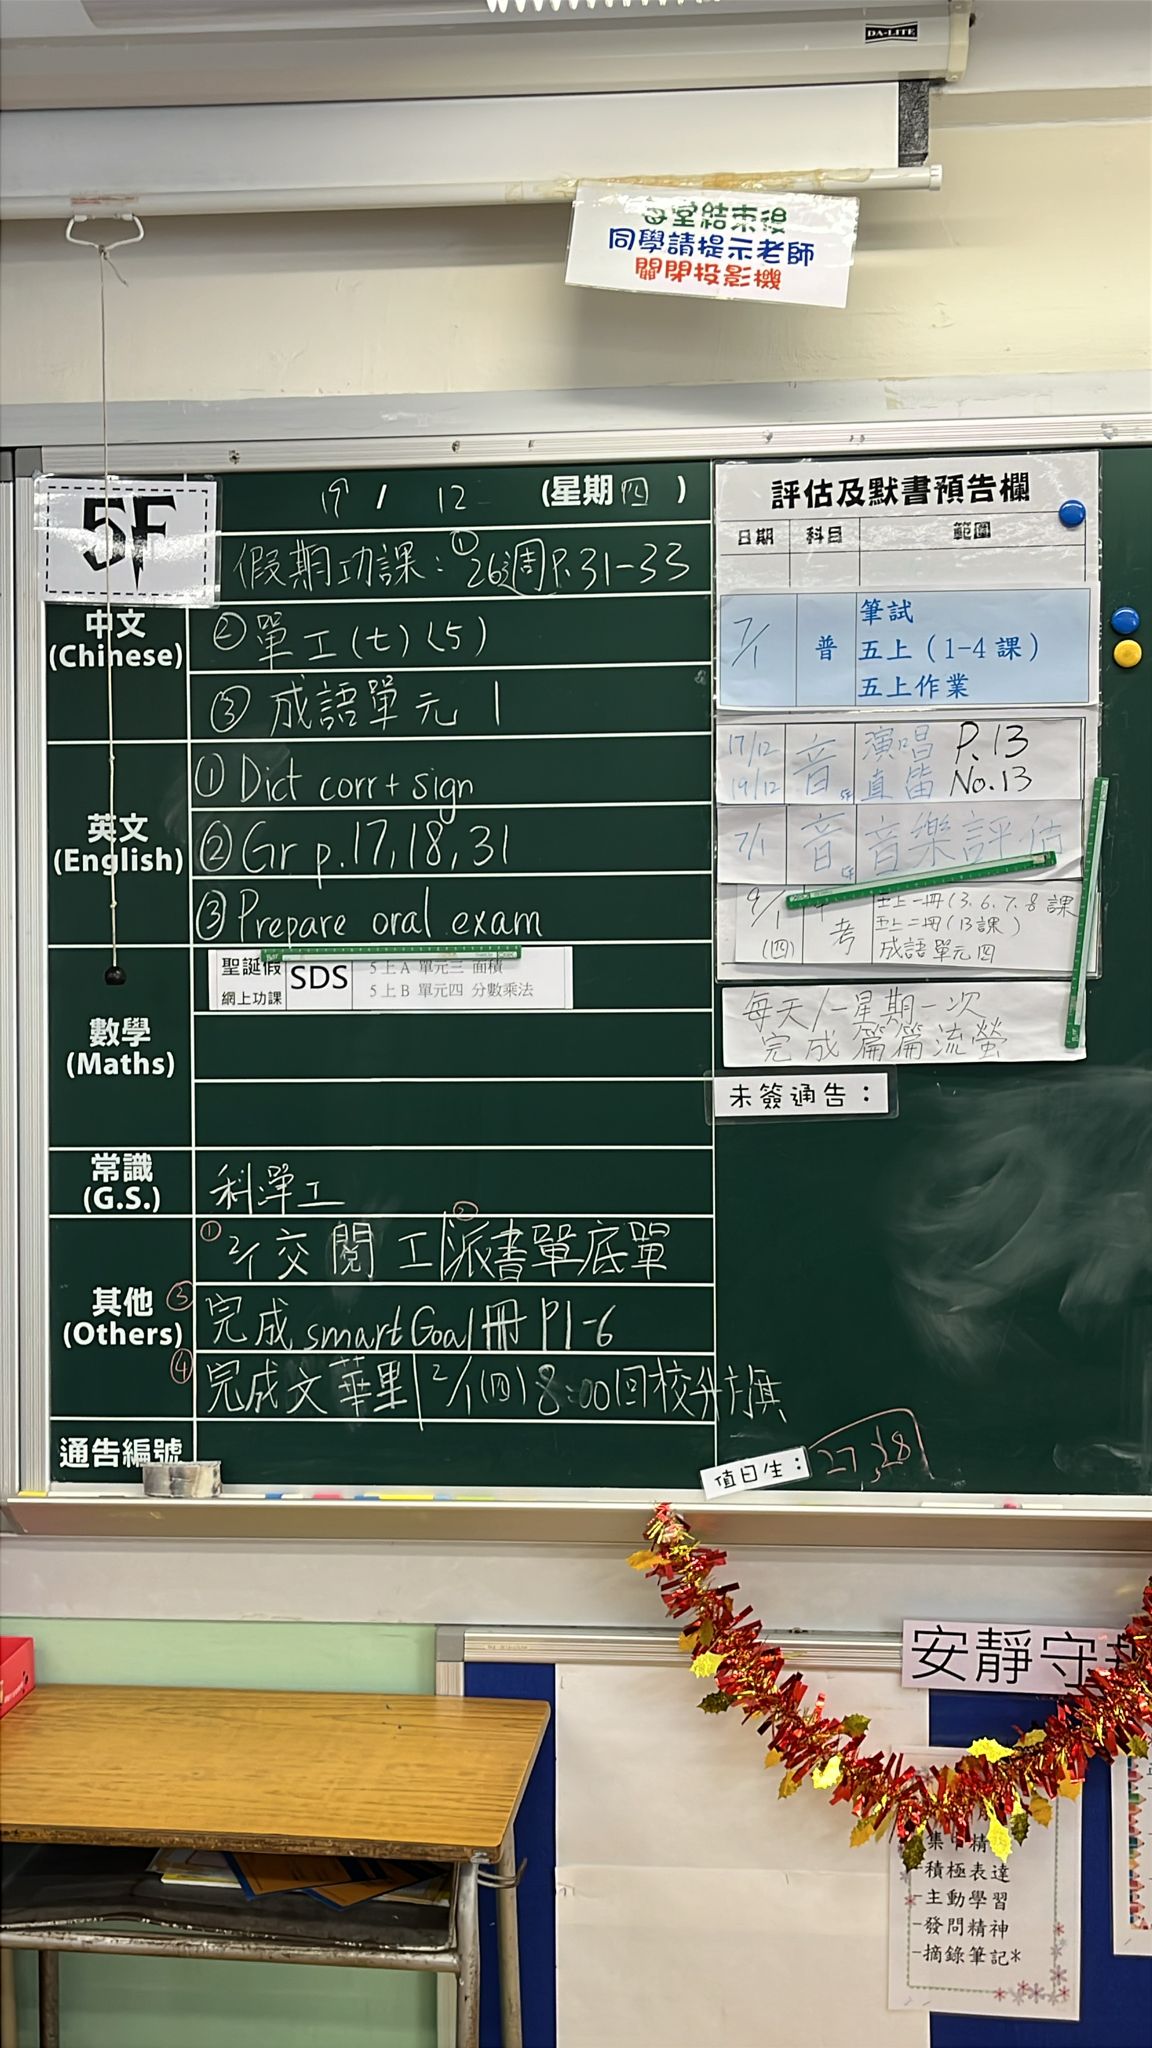 DA-LITE
每堂結束後
同學請提示老師
關閉投影機
5F
19 / 12 (星期四)
中文
(Chinese)
假期功課：① 26週P.31-33
② 單工(七)(5)
③ 成語單元 1
英文
(English)
① Dict corr + sign
② Gr p.17,18,31
③ Prepare oral exam
數學
(Maths)
聖誕假
網上功課
SDS
5上A 單元三 面積
5上B 單元四 分數乘法
常識
(G.S.)
科單工
其他
(Others)
① 2/1 交 閱 工 ② 派書單底單
③ 完成 smart Goal冊 P1-6
④ 完成文華里 2/1(四) 8:00回校升旗
通告編號
評估及默書預告欄
日期 科目 範圍
7/1 普 筆試
五上（1-4 課）
五上作業
17/12 音 演唱 P.13
19/12 直笛 No.13
7/1 音 音樂評估
9/1 五上一冊(3.6.7.8課
(四) 考 五上二冊(13課)
成語單元四
每天/一星期一次
完成 篇篇流螢
未簽通告：
值日生： 27,28
安靜守
集中精
-積極表達
-主動學習
-發問精神
-摘錄筆記*